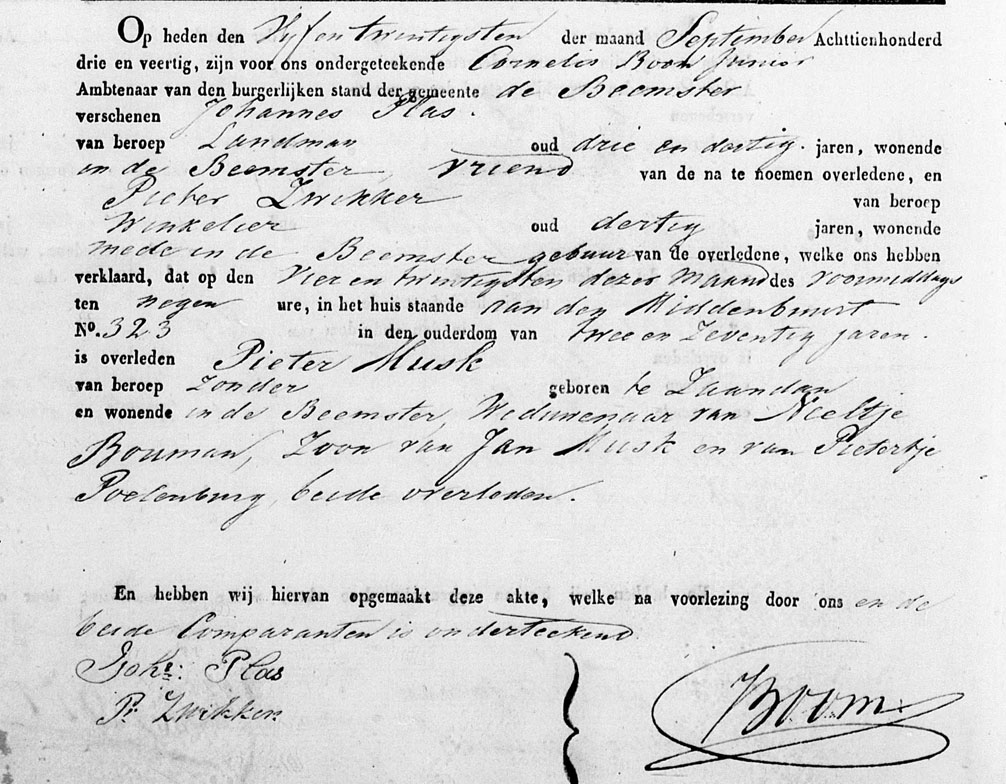 Op heden den Vyf en twintigsten der maand September Achttienhonderd
drie en veertig, zijn voor ons ondergeteekende Cornelis Boom Junior
Ambtenaar van den burgerlijken stand der gemeente de Beemster
verschenen Johannes Plas.
van beroep Landman oud drie en dertig. jaren, wonende
in de Beemster, vriend van de na te noemen overledene, en
Pieter Zwikker van beroep
Winkelier oud dertig jaren, wonende
mede in de Beemster gebuur van de overledene, welke ons hebben
verklaard, dat op den Vier en twintigsten dezer Maand des voormiddags
ten negen ure, in het huis staande aan den Middenbuurt
No. 323 in den ouderdom van twee en Zeventig jaren.
is overleden Pieter Musk
van beroep Zonder geboren te Zaandam
en wonende in de Beemster, Weduwenaar van Neeltje
Bouman, Zoon van Jan Musk en van Pietertje
Poelenburg, beide overleden.
En hebben wij hiervan opgemaakt deze akte, welke na voorlezing door ons en de
beide Comparanten is onderteekend
Johs: Plas
Pr Zwikker
Boom